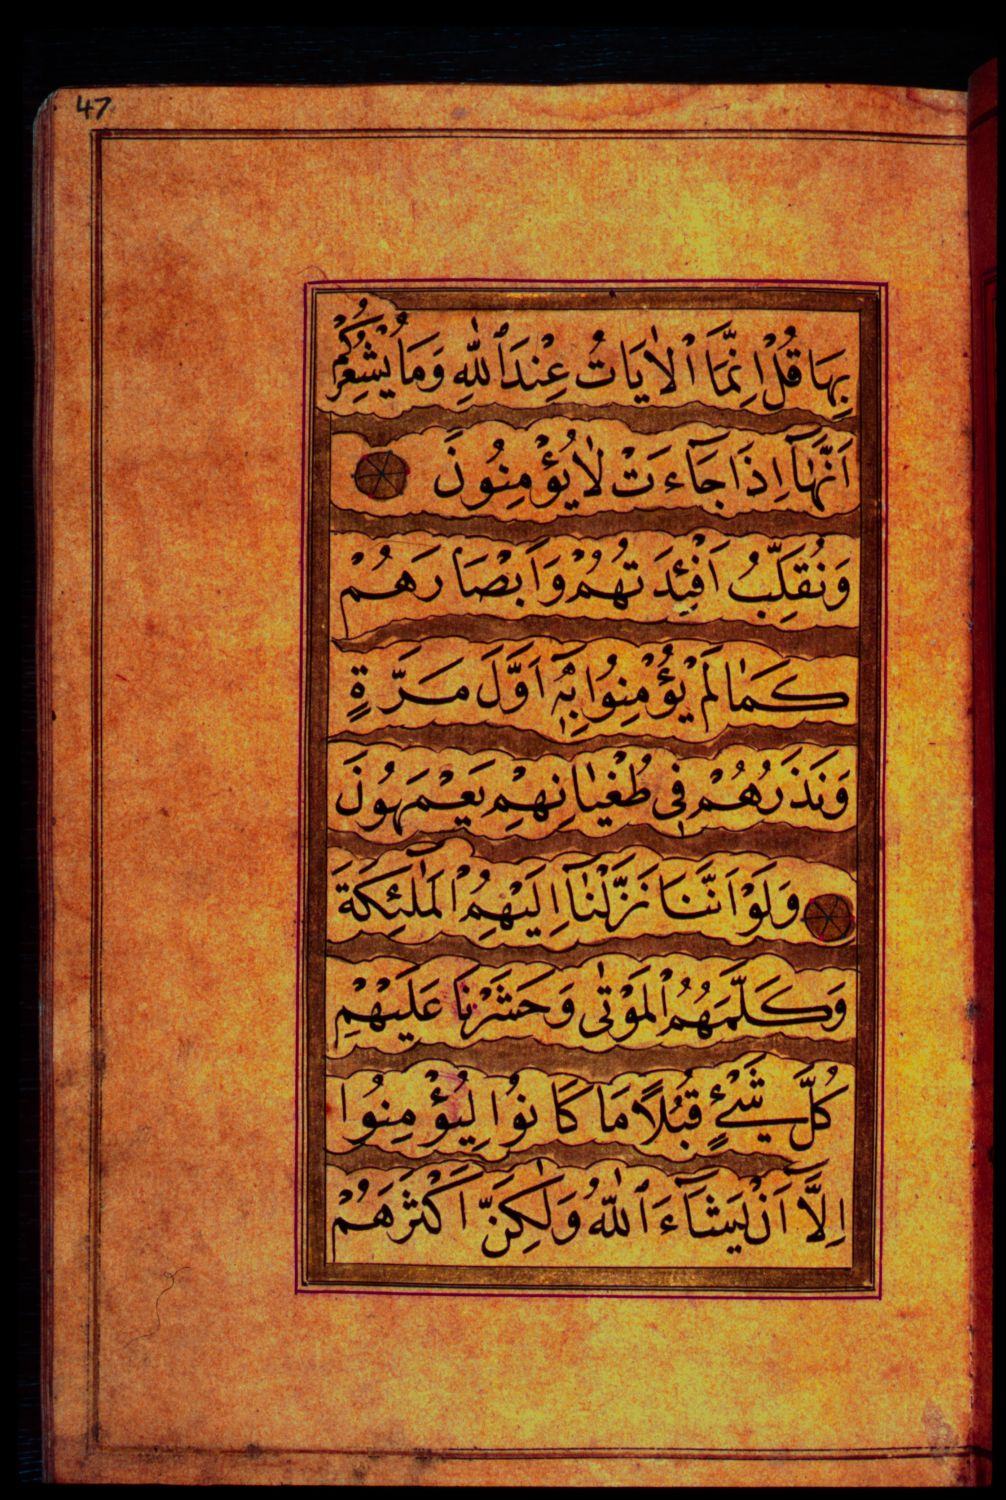 47
بِهَا قُلْ اِنَّمَا الْاٰيَاتُ عِنْدَ اللّٰهِ وَمَا يُشْعِرُكُمْ
اَنَّهَٓا اِذَا جَٓاءَتْ لَا يُؤْمِنُونَ
وَنُقَلِّبُ اَفْئِدَتَهُمْ وَاَبْصَارَهُمْ
كَمَا لَمْ يُؤْمِنُوا بِهٖٓ اَوَّلَ مَرَّةٍ
وَنَذَرُهُمْ فٖى طُغْيَانِهِمْ يَعْمَهُونَ
وَلَوْ اَنَّنَا نَزَّلْنَٓا اِلَيْهِمُ الْمَلٰٓئِكَةَ
وَكَلَّمَهُمُ الْمَوْتٰى وَحَشَرْنَا عَلَيْهِمْ
كُلَّ شَىْءٍ قُبُلًا مَا كَانُوا لِيُؤْمِنُوا
اِلَّٓا اَنْ يَشَٓاءَ اللّٰهُ وَلٰكِنَّ اَكْثَرَهُمْ